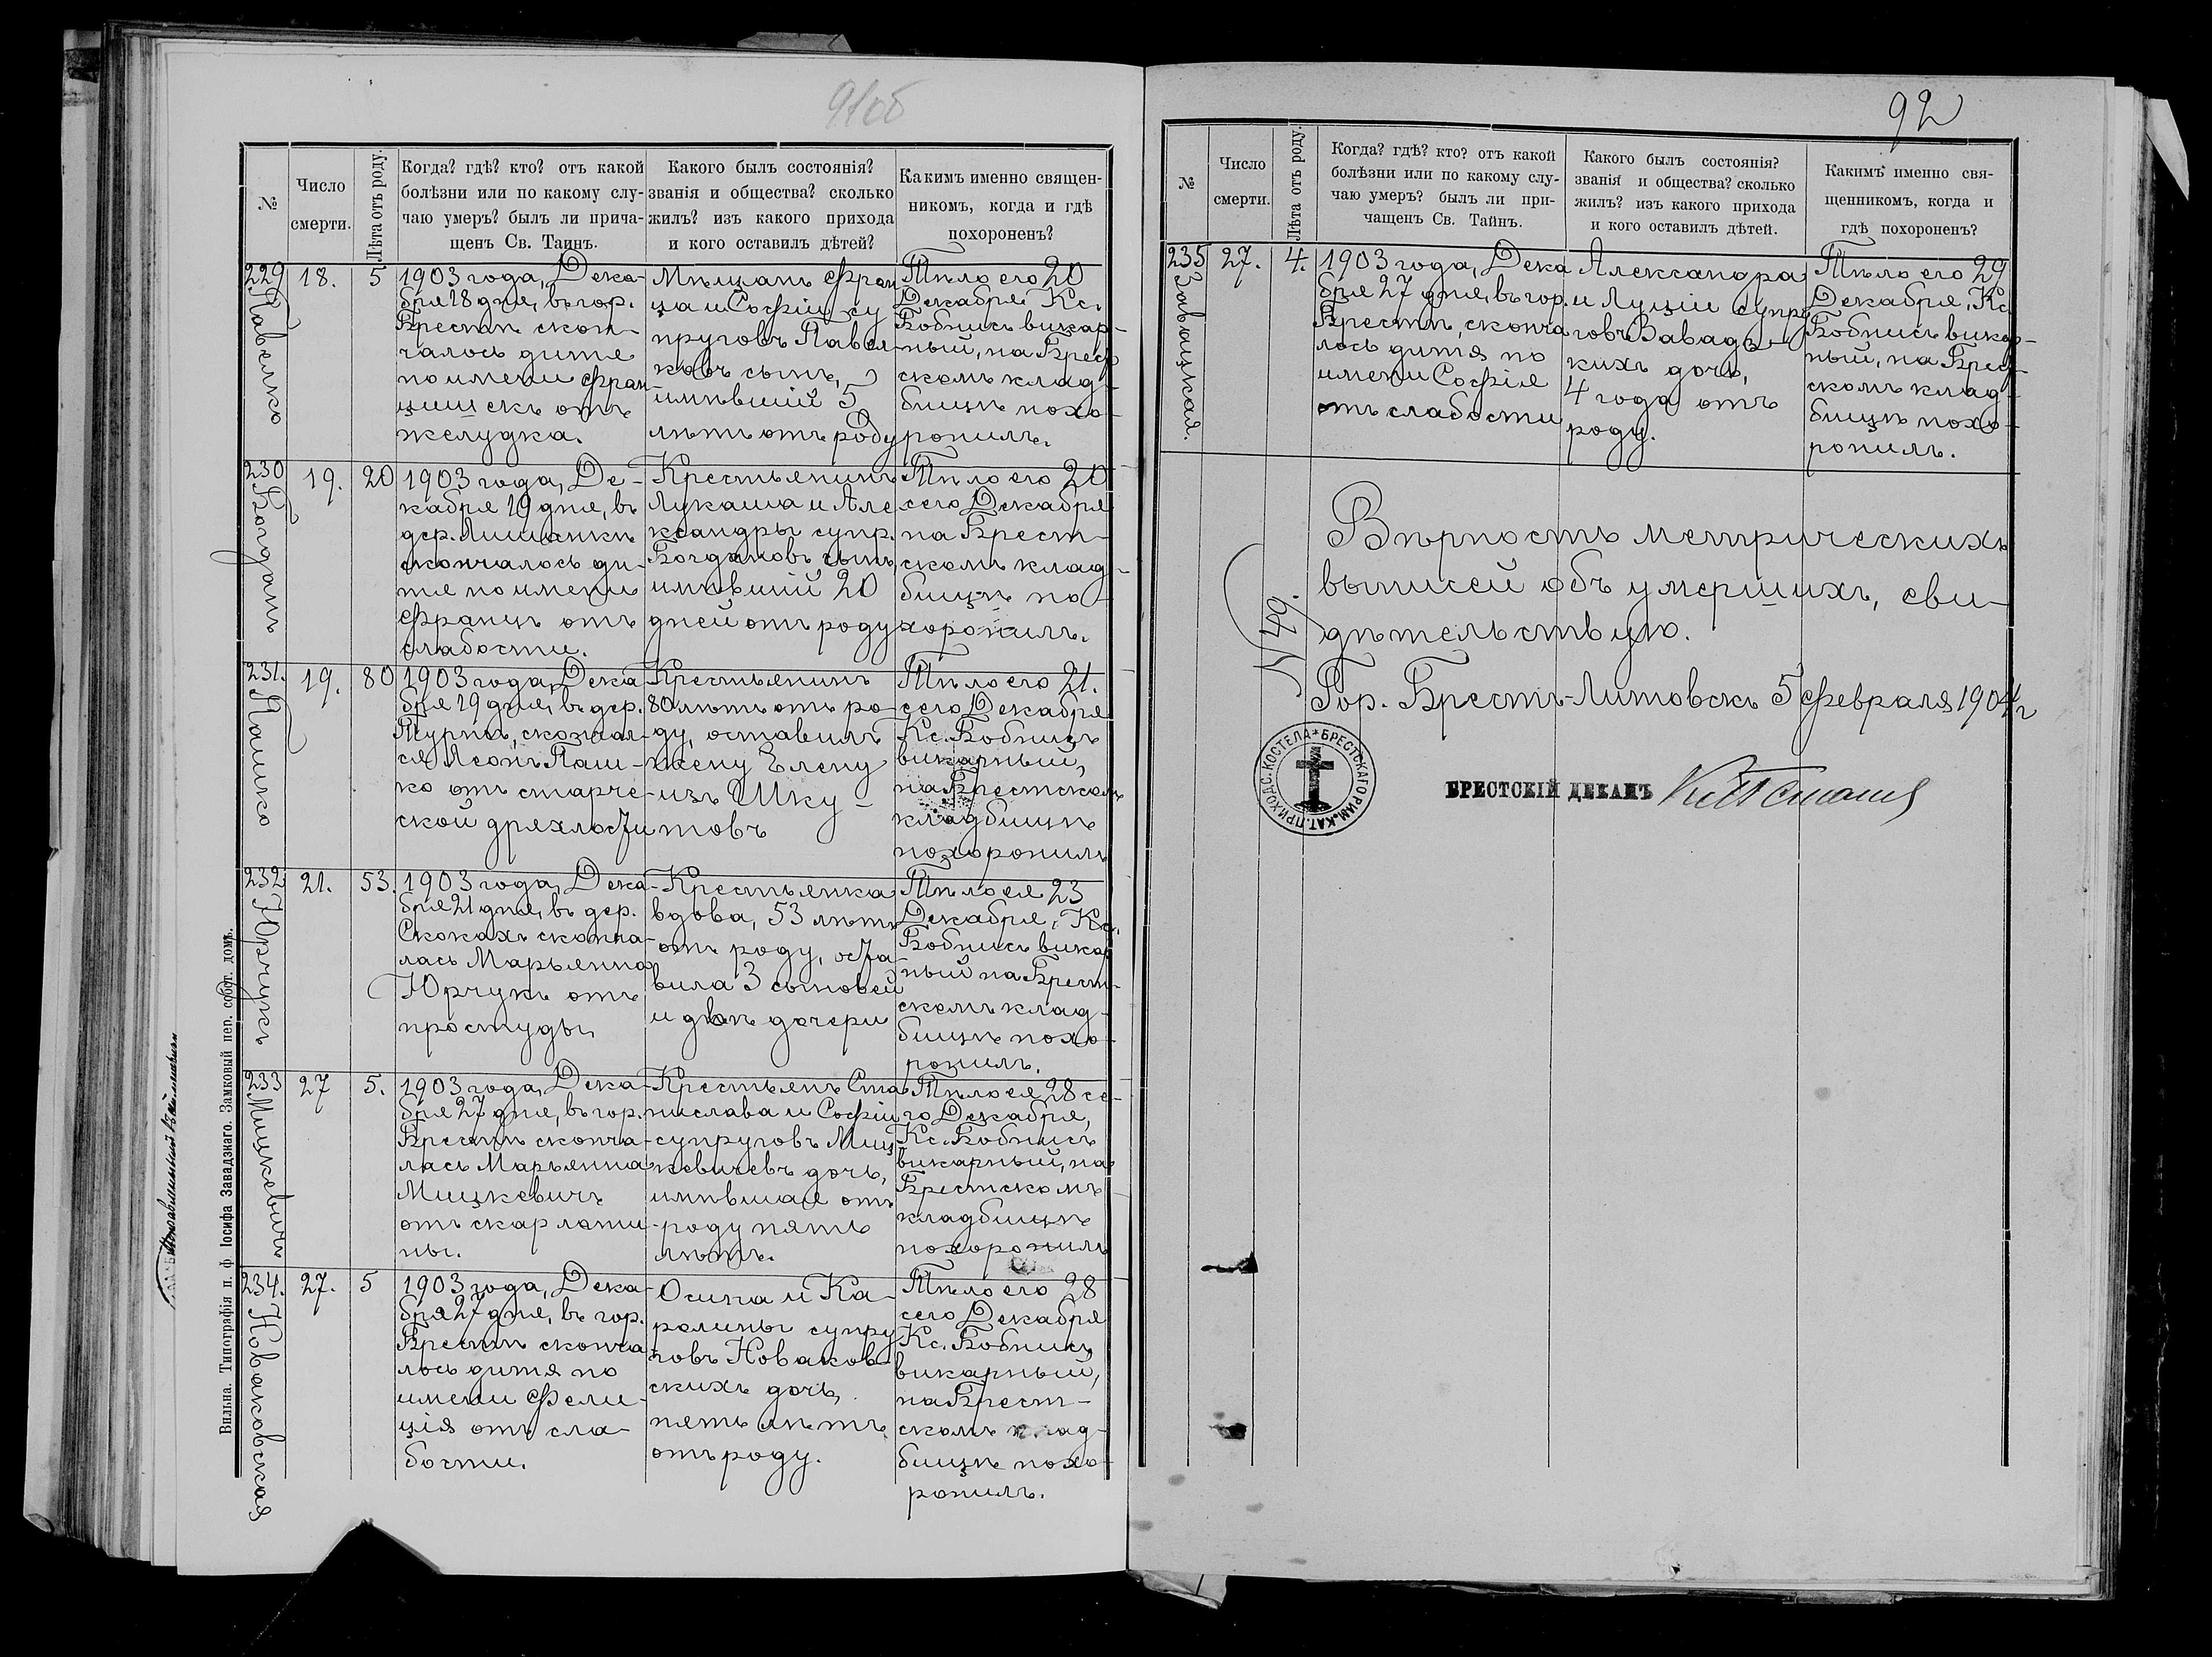 91об
№
Число
смерти.
Лѣта отъ роду.
Когда? гдѣ? кто? отъ какой
болѣзни или по какому слу-
чаю умеръ? былъ ли прича-
щенъ Св. Таинъ.
Какого былъ состоянія?
званія и общества? сколько
жилъ? изъ какого прихода
и кого оставилъ дѣтей?
Какимъ именно священ-
никомъ, когда и гдѣ
похороненъ?
229
Павелко
18.
5
1903 года, Дека-
бря 18 дня, въ гор.
Брестѣ скон-
чалось дитя
по имени Фран-
цишекъ отъ
желудка.
Мѣщанъ Фран
ца и Софіи су
пруговъ Павел-
ковъ сынъ,
имѣвшій 5
лѣтъ отъ роду
Тѣло его 20
Декабря Кс.
Бобнисъ викар-
ный, на Брест
скомъ клад-
бищѣ похо-
ронилъ.
230
Богданъ
19.
20
1903 года, Де-
кабря 19 дня, въ
дер.
скончалось ди-
тя по имени
Францъ отъ
слабости.
Крестьянинъ
Лукаша и Але
ксандры супр.
Богдановъ сынъ
имѣвшій 20
дней отъ роду
Тѣло его 20
сего Декабря
на Брест-
скомъ клад-
бищѣ по-
хоронилъ.
231.
Пашко
19.
80
1903 года, Дека
бря 19 дня, въ дер.
скончал-
ся Леонъ Паш-
ко отъ старче-
ской дряхлости
Крестьянинъ
80 лѣтъ отъ ро-
ду, оставилъ
жену Елену
изъ Шку-
товъ
Тѣло его 21.
сего Декабря
Кс. Бобнисъ
викарный,
на Брестскомъ
кладбищѣ
похоронилъ
232
Юрчукъ
21.
53.
1903 года, Дека-
бря 21 дня, въ дер.
Скокахъ сконча-
лась Марьянна
Юрчукъ отъ
простуды
Крестьянка
вдова, 53 лѣтъ
отъ роду, оста-
вила 3 сыновей
и двѣ дочери
Тѣло ея 23
Декабря, Кс.
Бобнисъ викар
ный на Брест-
скомъ клад-
бищѣ похо-
ронилъ.
233
Мицкевичъ
27
5.
1903 года, Дека-
бря 27 дня, въ гор.
Брестѣ сконча-
лась Марьянна
Мицкевичъ
отъ скарлати-
ны.
Крестьянъ Ста
нислава и Софіи
супруговъ Миц
кевичевъ дочь,
имѣвшая отъ
роду пять
лѣтъ.
Тѣло ея 28 се-
го Декабря,
Кс. Бобнисъ
викарный, на
Брестскомъ
кладбищѣ
похоронилъ
234.
Новаковская
27.
5
1903 года, Дека-
бря 27 дня, въ гор.
Брестѣ сконча
лось дитя по
имени Фели-
ція отъ сла-
бости.
Осипа и Ка-
ролины супру
говъ Новаков-
скихъ дочь,
пять лѣтъ
отъ роду.
Тѣло его 28
сего Декабря
Кс. Бобнисъ
викарный,
на Брест-
скомъ клад-
бищѣ похо-
ронилъ.
Вильна. Типографія п. ф. Іосифа Завадзкаго. Замковый пер. собст. домъ.
92
№
Число
смерти.
Лѣта отъ роду.
Когда? гдѣ? кто? отъ какой
болѣзни или по какому слу-
чаю умеръ? былъ ли при-
чащенъ Св. Тайнъ.
Какого былъ состоянія?
званія и общества? сколько
жилъ? изъ какого прихода
и кого оставилъ дѣтей.
Какимъ именно свя-
щенникомъ, когда и
гдѣ похороненъ?
235
Завадцкая.
27.
4.
1903 года, Дека
бря 27 дня, въ гор.
Брестѣ, сконча
лось дитя по
имени Софія
отъ слабости
Александра
и Луціи супру
говъ Завадз-
кихъ дочь,
4 года отъ
роду.
Тѣло его 29
Декабря, Кс.
Бобнисъ викар-
ный, на Брест-
скомъ клад-
бищѣ похо-
ронилъ.
Вѣрность метрическихъ
выписей объ умершихъ, сви-
дѣтельствую.
№ 49.
Гор. Брестъ-Литовскъ 5 февраля 1904 г
БРЕСТСКАГО РИМ.-КАТ. ПРИХОДС. КОСТЕЛА
БРЕСТСКІЙ ДЕКАНЪ